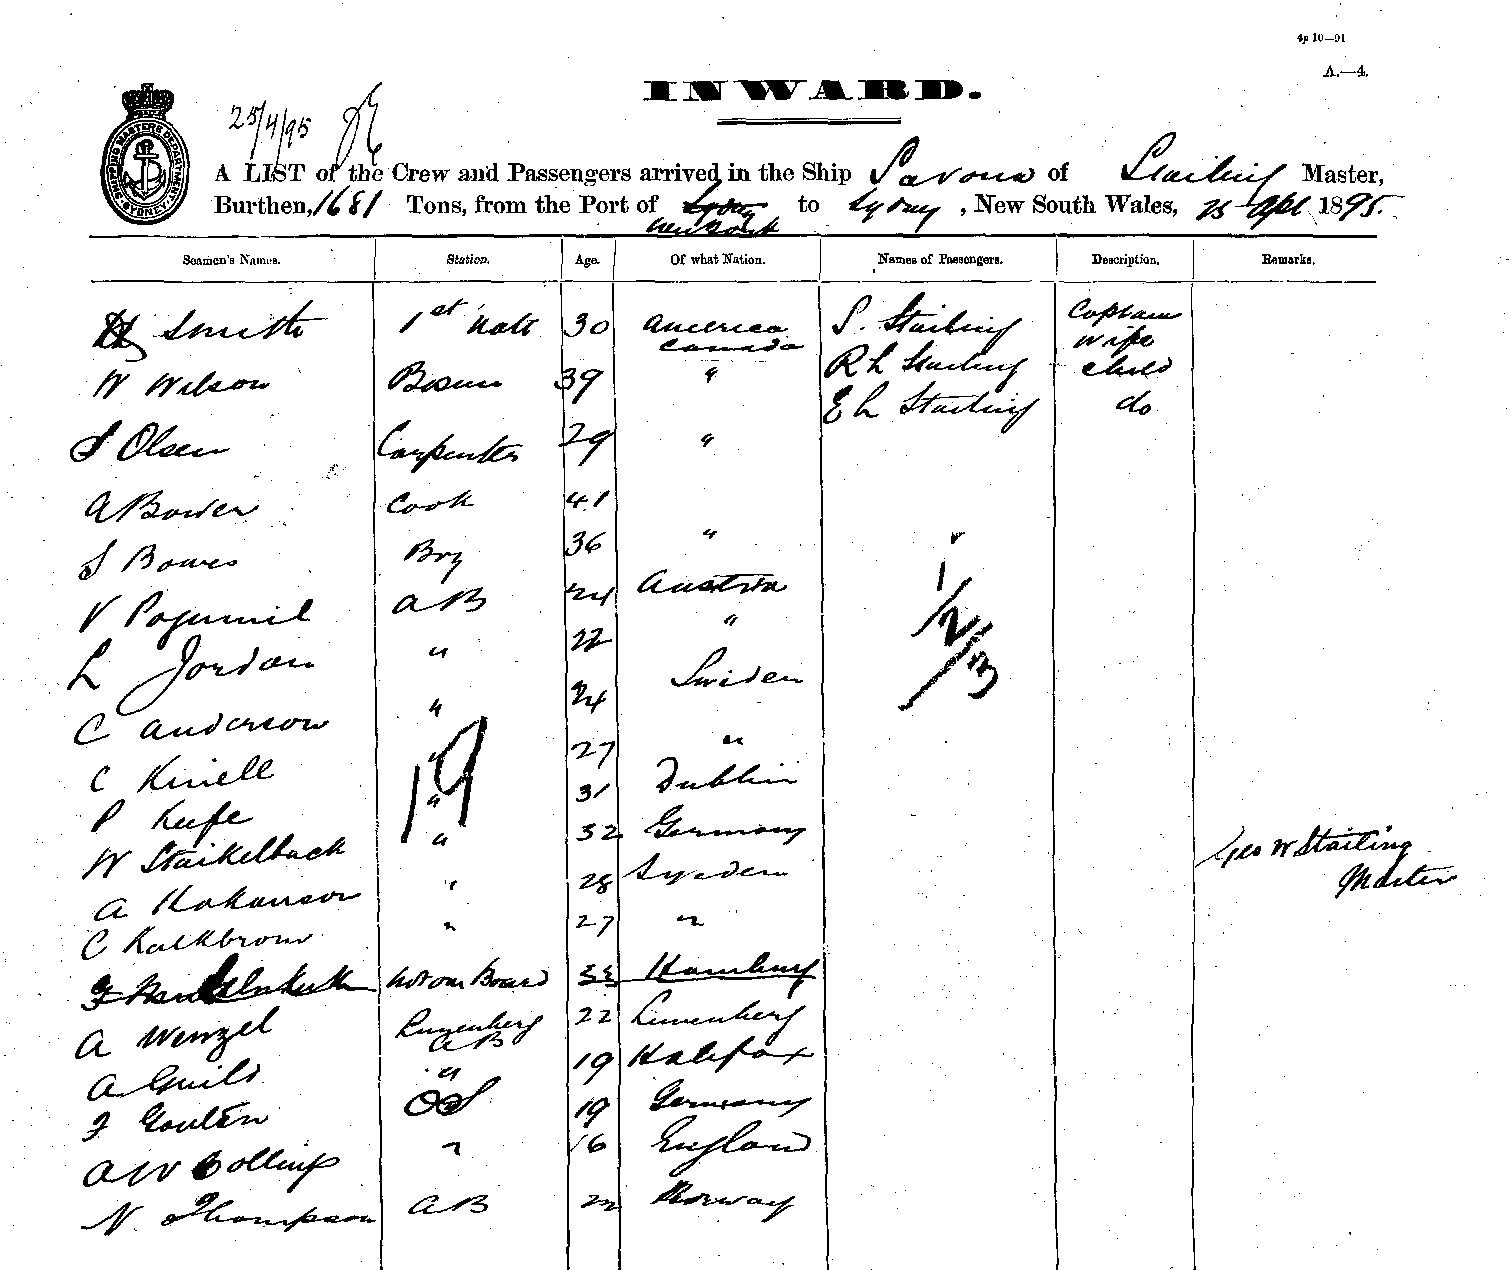 4p 10—91
A.—4.
INWARD.
25/4/95
SHIPPING MASTERS DEPARTMENT SYDNEY
A LIST of the Crew and Passengers arrived in the Ship Savona of Stailing Master,
Burthen, 1681 Tons, from the Port of Sydney to Sydney, New South Wales, 25 Apl 1895.
New York
Seamen's Names. Station. Age. Of what Nation. Names of Passengers. Description. Remarks.
H Smith 1st Mate 30 America S. Stailing Captain
Canada wife
W Wilson Bosun 39 " R L Stailing child
E L Stailing do
S Olsen Carpenter 29 "
A Bower Cook 41
S Bowes Boy 36 "
V Pogumil AB 24 Austria 1/2/3
L Jordan " 22 "
C Anderson " 24 Sweden
C Kinell " 27 "
19
P Keefe " 31 Dublin
W Staikelback " 32 Germany Geo W Stailing
A Hakanson " 28 Sweden Master
C Kalkbrow " 27 "
F Not on Board 33 Hamburg
A Wenzel Lunenberg 22 Lunenberg
AB
A Guild " 19 Halifax
F Goulen OS 19 Germany
A W Collings " 16 England
N. Thompson AB 22 Norway